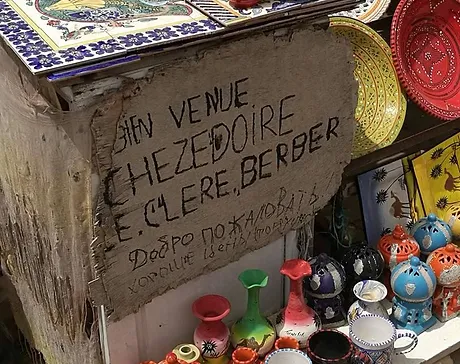 BIEN VENUE
CHEZEDOIRE
LE.CLERE.BERBER
Добро пожаловать
хорошие